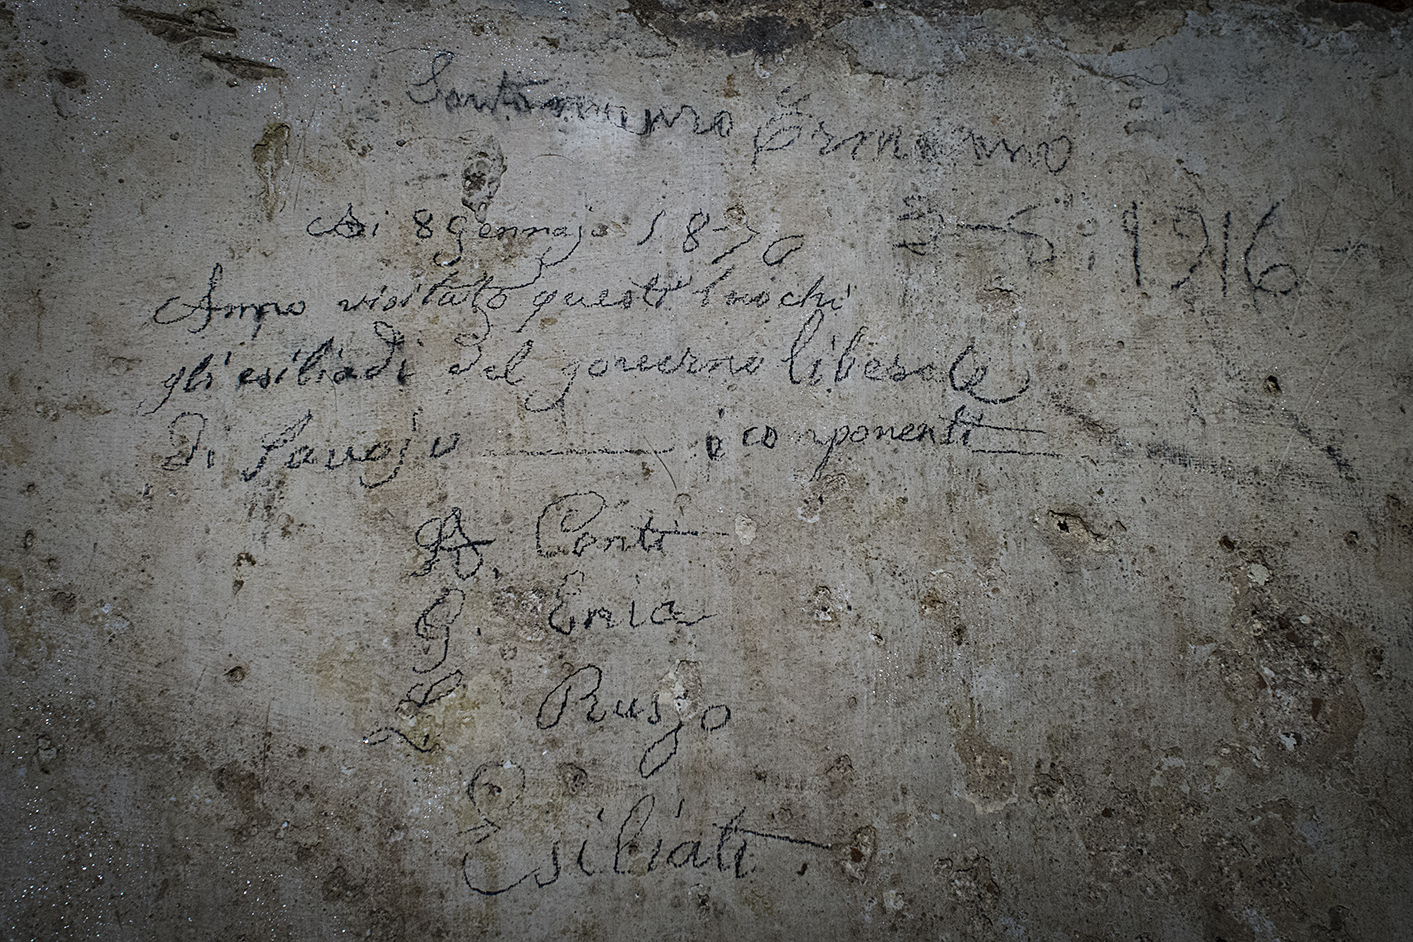 Santomauro Ermanno
3-6-1916
Adi 8 Gennajo 1870
Ampo visitato questi luochi
gli esiliadi del governo liberale
di Savoja i componenti
A. Conti
G. Enia
L. Russo
Esiliati.